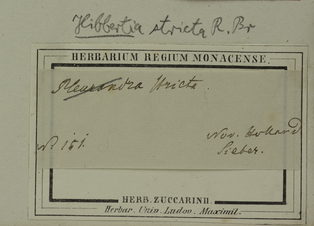 Hibbertia stricta R. Br
HERBARIUM REGIUM MONACENSE.
stricta.
N. 151.
Nov. Holland
Sieber.
HERB. ZUCCARINII.
Herbar. Univ. Ludov. Maximil.